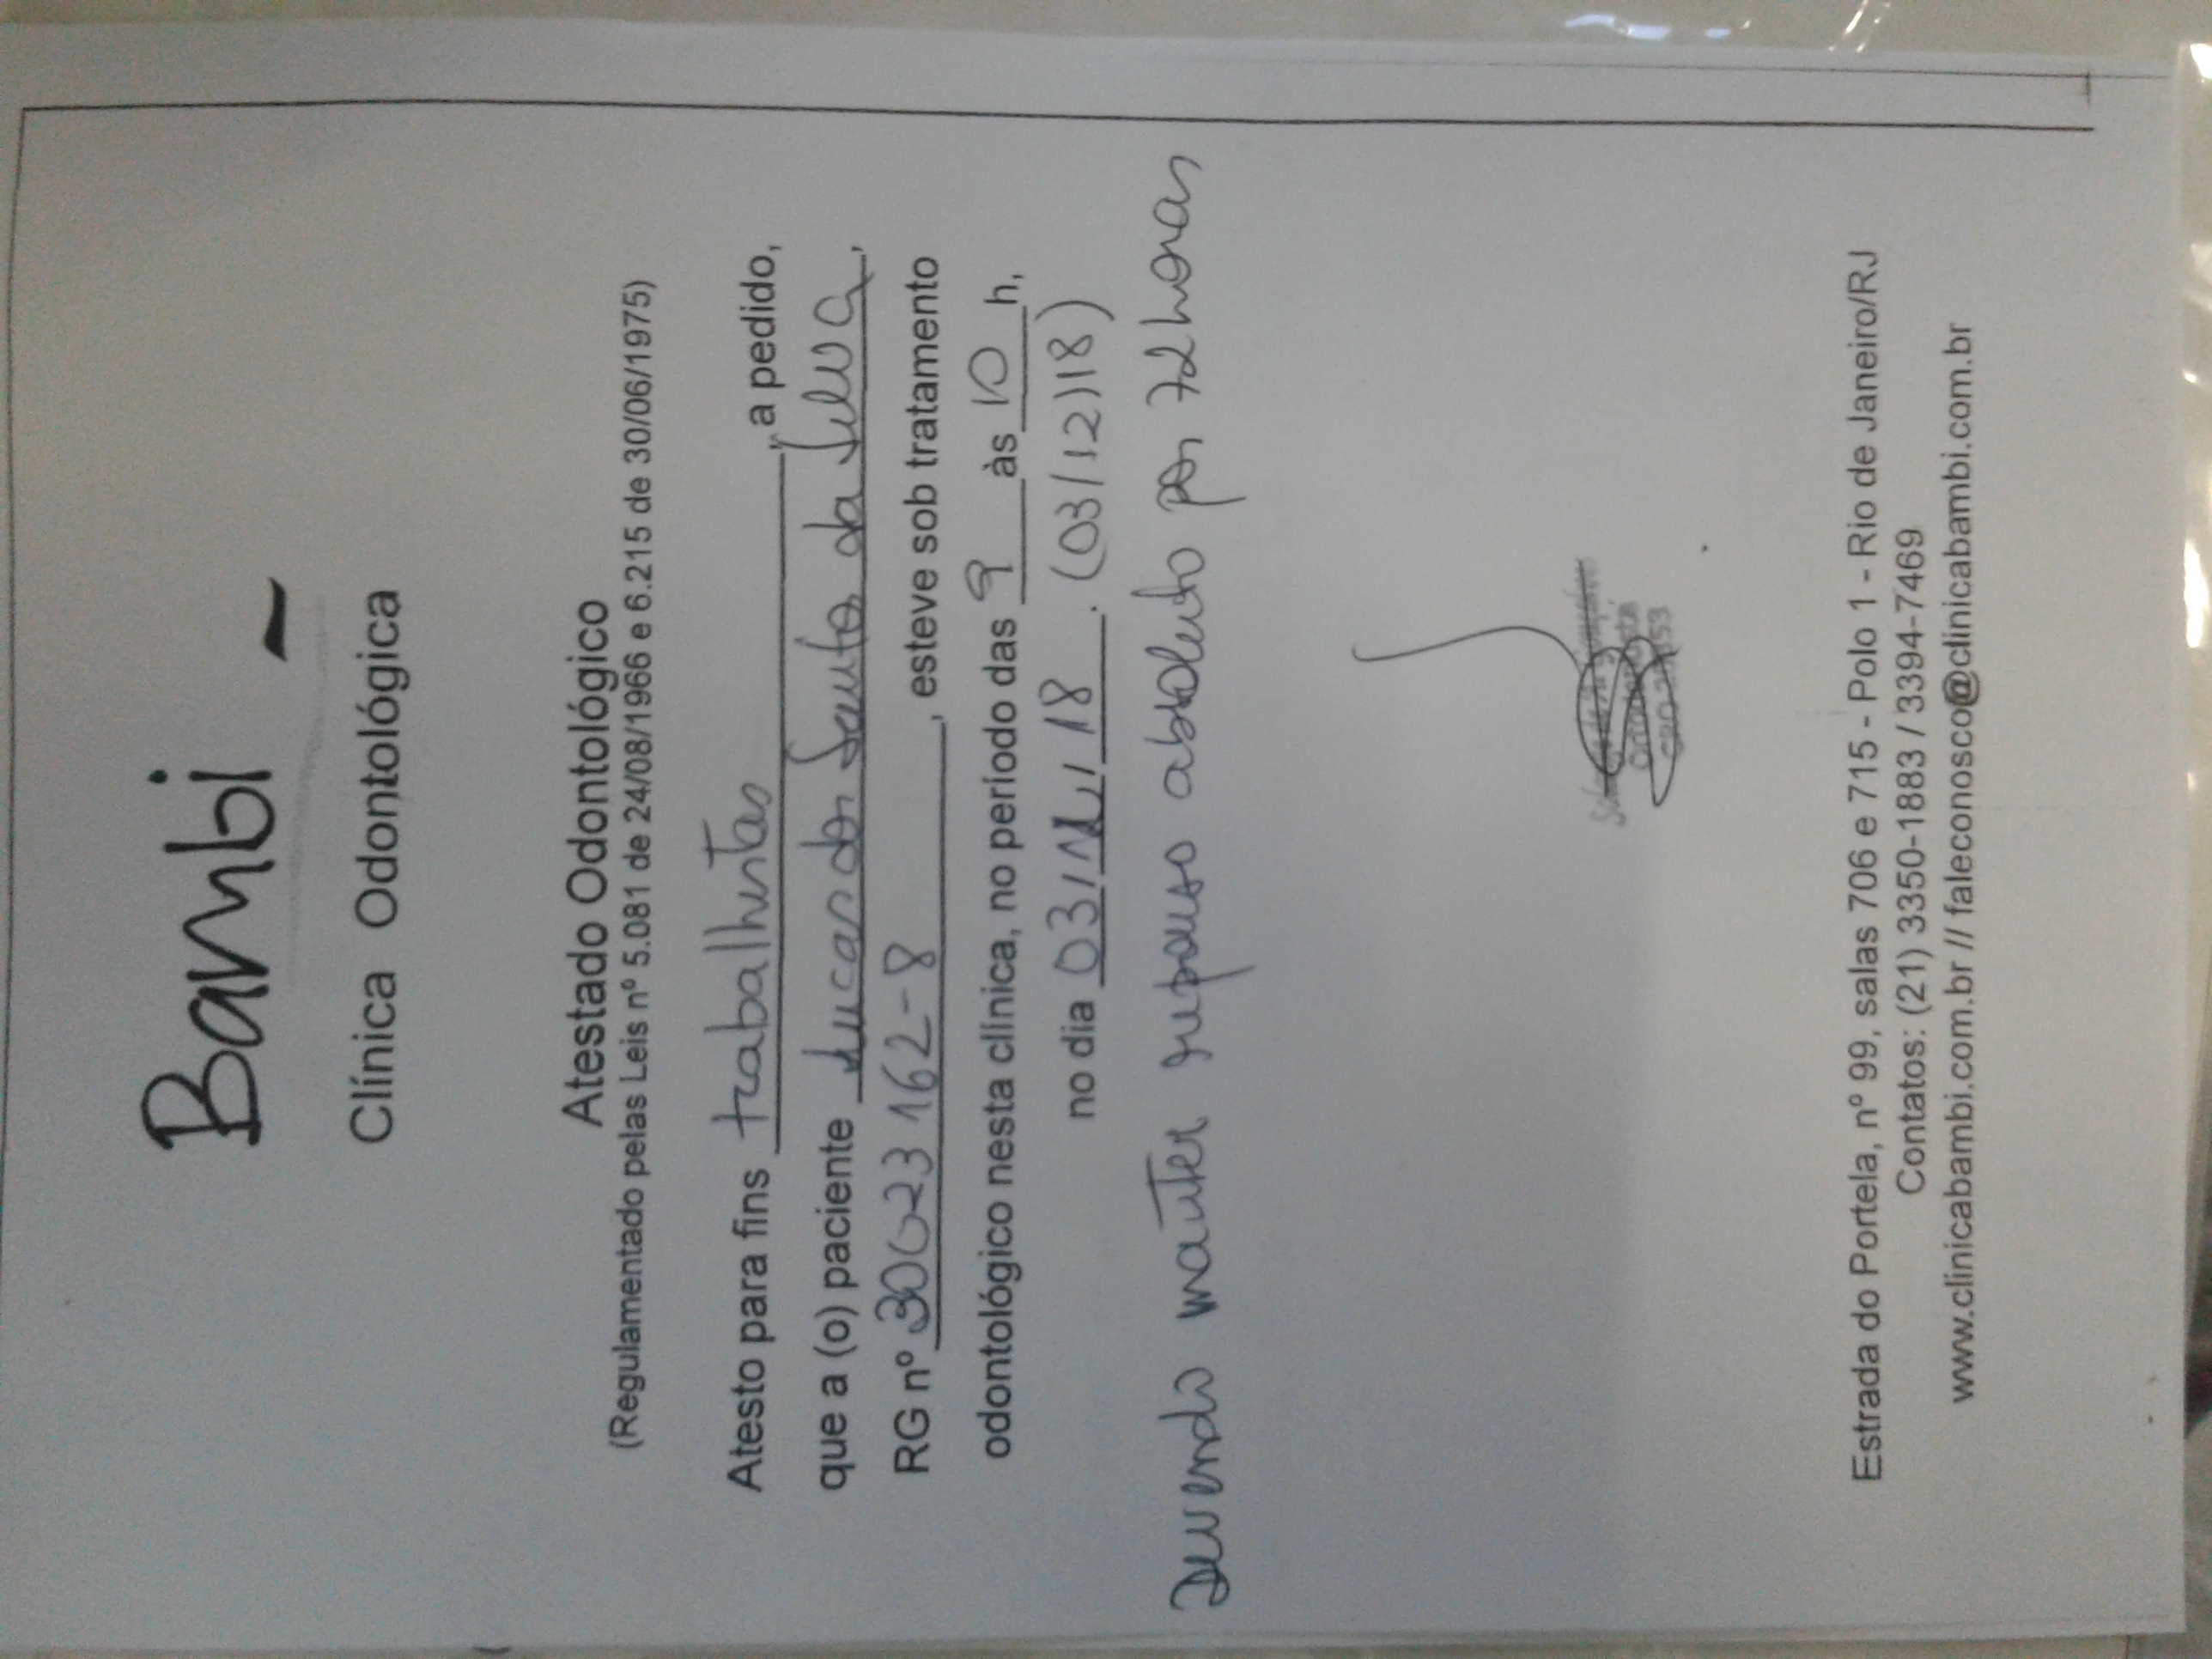 Bambi
Clínica Odontológica
Atestado Odontológico
(Regulamentado pelas Leis nº 5.081 de 24/08/1966 e 6.215 de 30/06/1975)
Atesto para fins trabalhistas, a pedido,
que a (o) paciente Lucas dos Santos da Silva,
RG nº 30623162-8, esteve sob tratamento
odontológico nesta clínica, no período das 9 às 10 h,
no dia 03/12/18. (03/12/18)
Devendo manter repouso absoluto por 72 horas
Estrada do Portela, nº 99, salas 706 e 715 - Polo 1 - Rio de Janeiro/RJ
Contatos: (21) 3350-1883 / 3394-7469
www.clinicabambi.com.br // faleconosco@clinicabambi.com.br